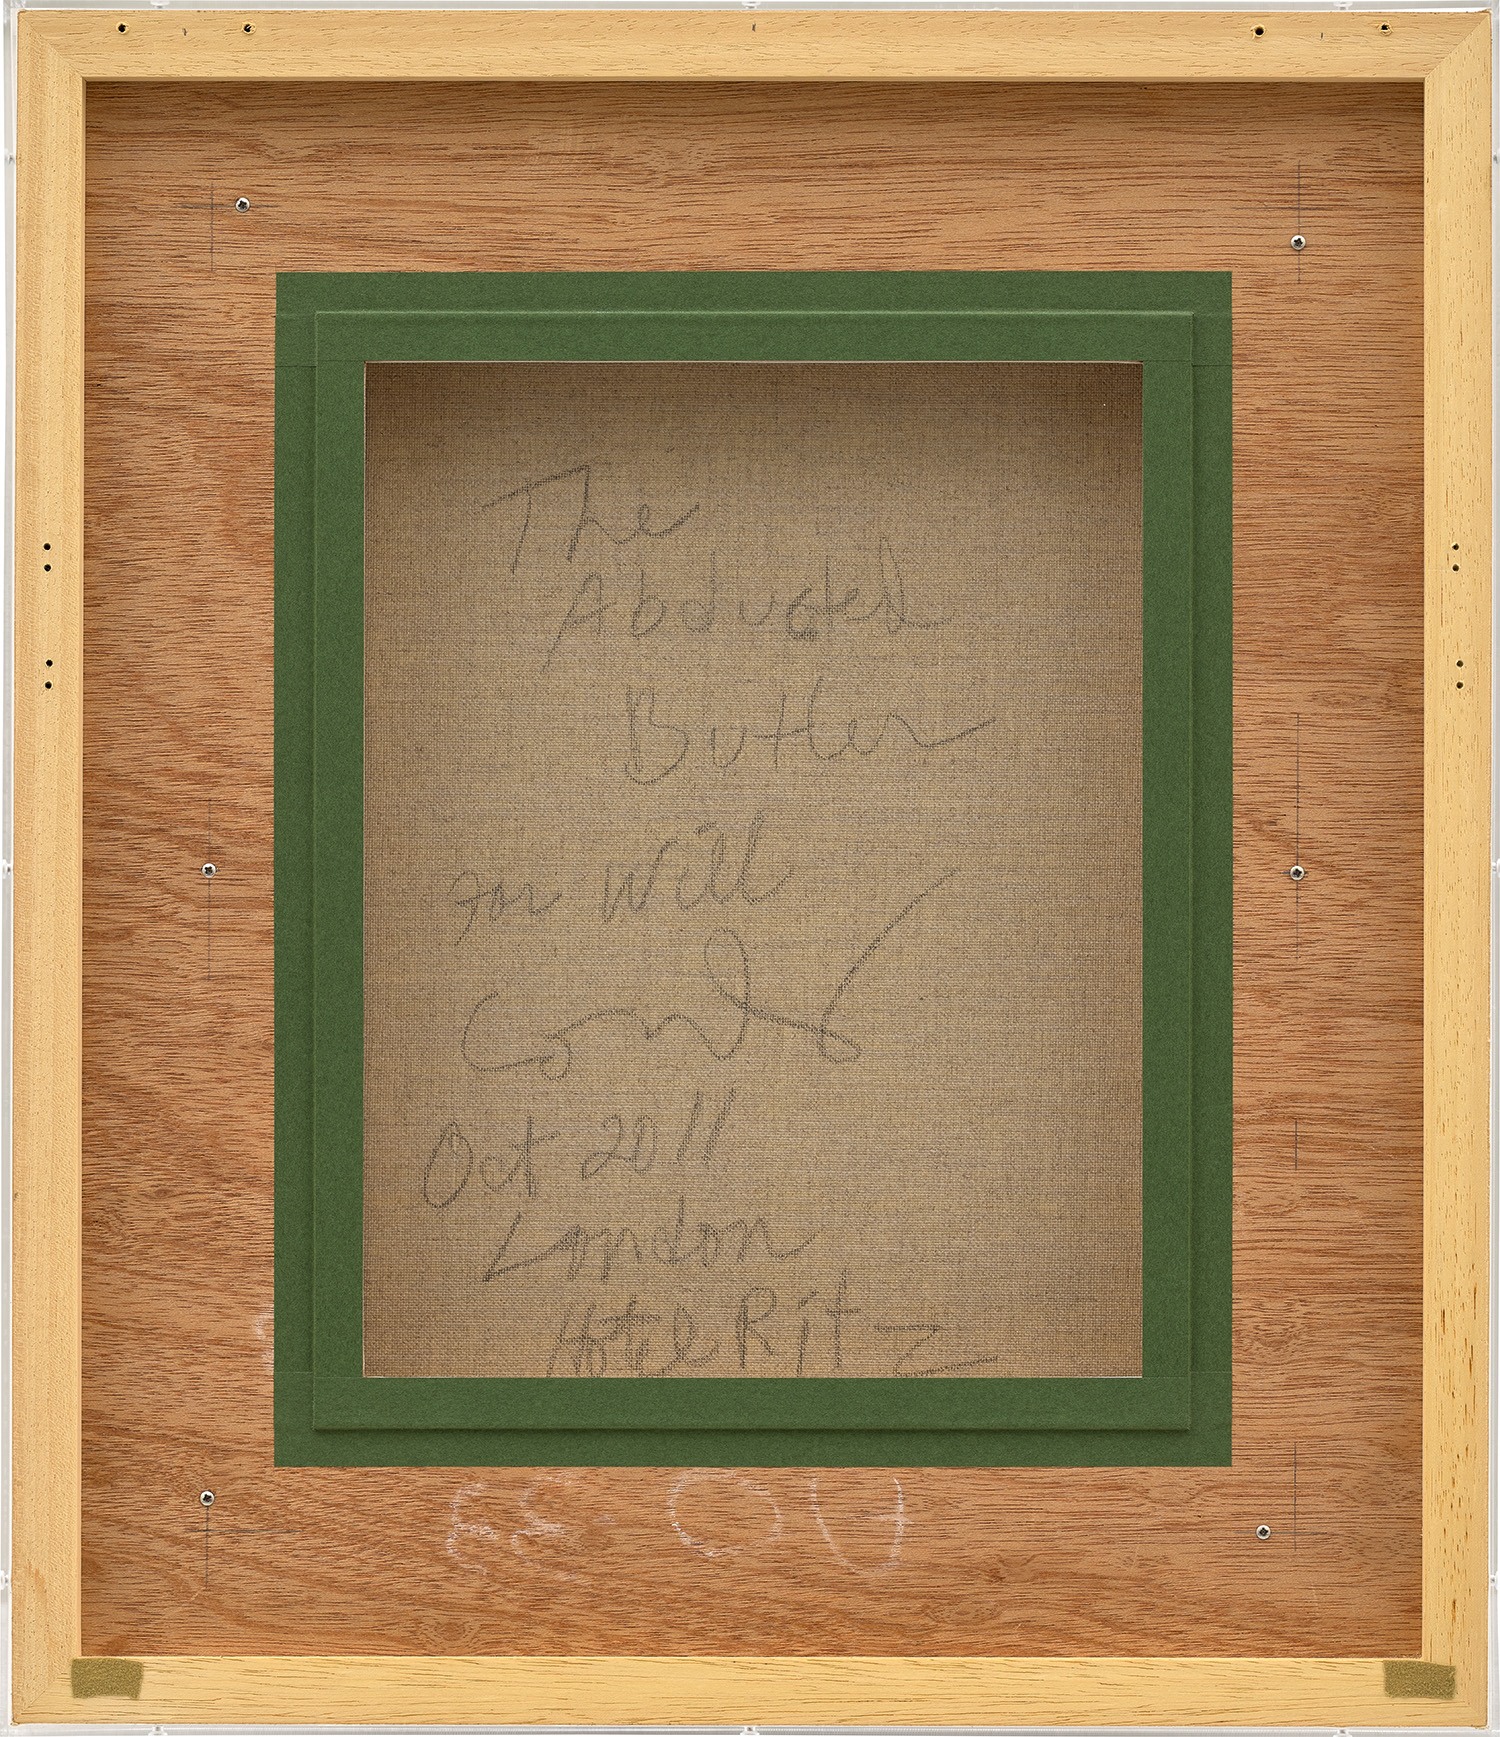 The
Abducted
Butler
for Will
Condo
Oct 2011
London
Hotel Ritz